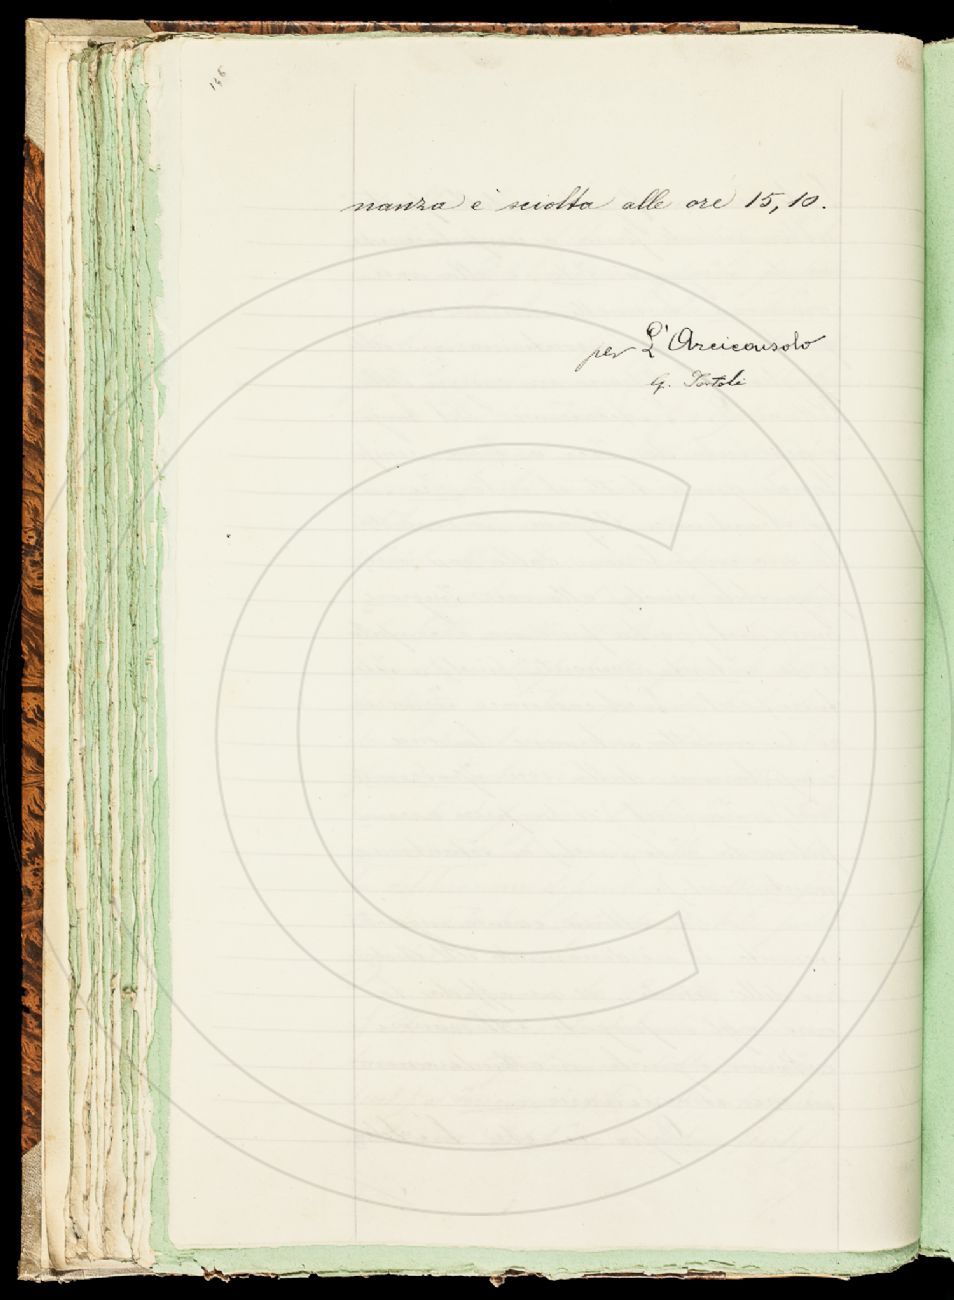 146
nanza è sciolta alle ore 15,10.
per L'Arciconsolo
G. Tortoli